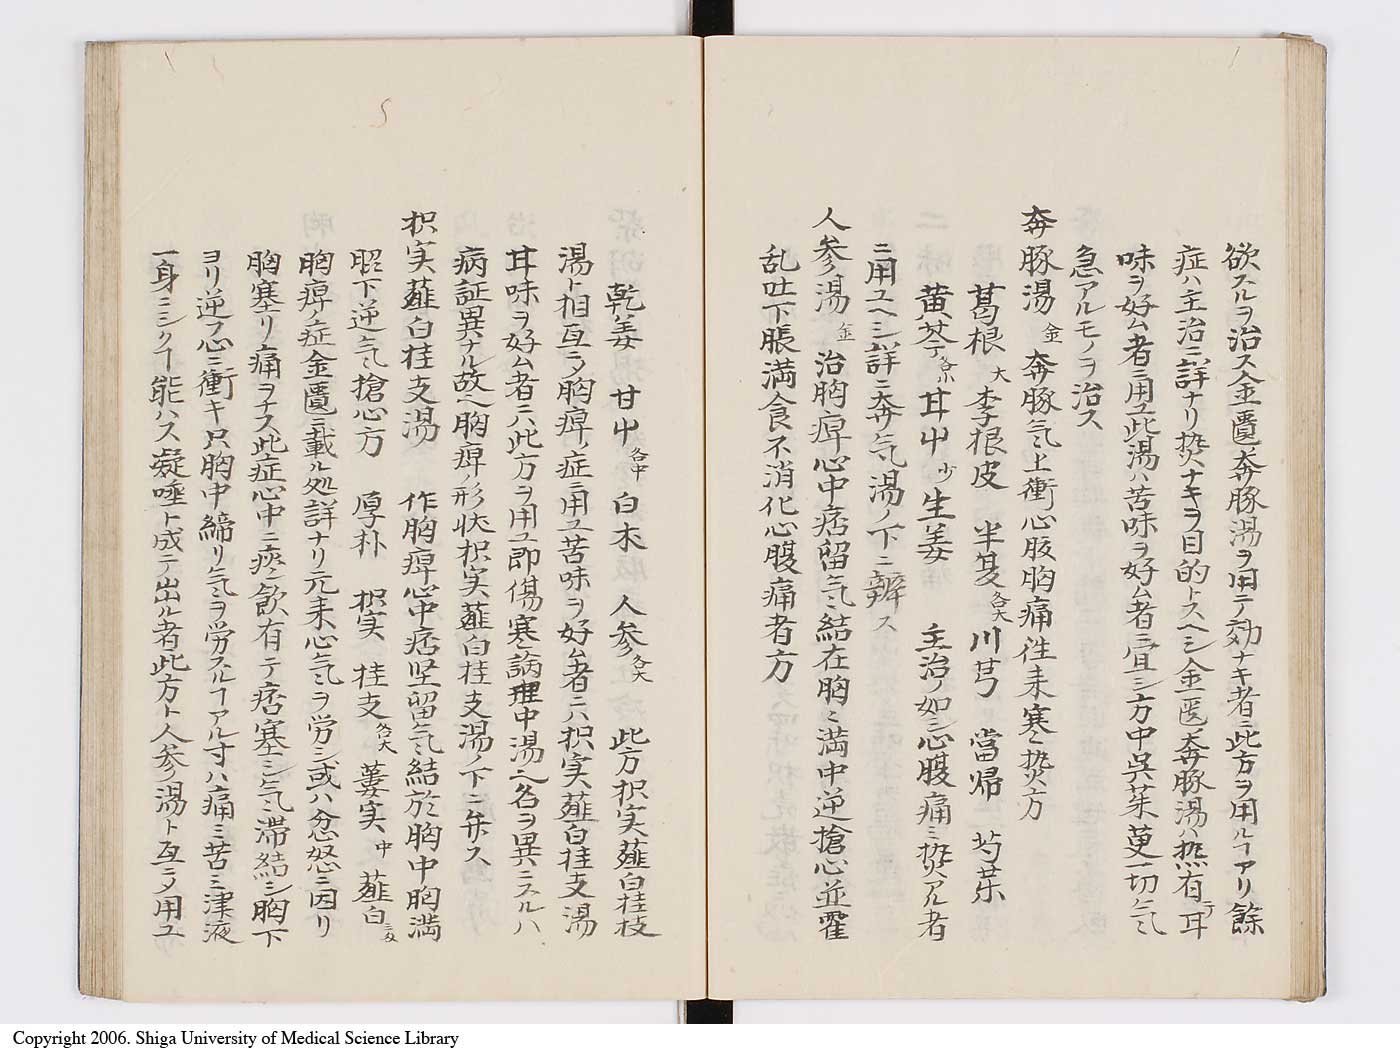 欲スルヲ治ス金匱奔豚湯ヲ用テ効ナキ者ニ此方ヲ用ルヿアリ餘
症ハ主治ニ詳ナリ熱ナキヲ目的トスヘシ金匱奔豚湯ハ熱有テ耳
味ヲ好ム者ニ用ユ此湯ハ苦味ヲ好ム者ニ宜シ方中呉茱萸一切気
急アルモノヲ治ス
奔豚湯 金 奔豚気上衝心腹胸痛往来寒々熱方
葛根 大 李根皮 半夏 各大 川芎 當帰 芍薬
黄芩 各小 甘艸 少 生姜 主治ノ如シ心腹痛ミ熱アル者
ニ用ユヘシ詳ニ奔気湯ノ下ニ辨ス
人参湯 金 治胸痺心中痞留気々結在胸々満中逆搶心並霍
乱吐下脹満食不消化心腹痛者方
乾姜 甘艸 各中 白朮 人参 各大 此方枳実薤白桂枝
湯ト相互ニ〆胸痺ノ症ニ用ユ苦味ヲ好ム者ニハ枳実薤白桂支湯
甘味ヲ好ム者ニハ此方ヲ用ユ即傷寒論理中湯也名ヲ異ニスルハ
病証異ナル故也胸痺ノ形状枳実薤白桂支湯ノ下ニ弁ス
枳実薤白桂支湯 作胸痺心中痞坚留気々結於胸中胸満
脇下逆気搶心方 厚朴 枳実 桂支 各大 蔞実 中 薤白
胸痺ノ症金匱ニ載ル処詳ナリ元来心気ヲ労シ或ハ忿怒ニ因リ
胸塞リ痛ヲナス此症心中ニ痰飲有テ痞塞シ気滞結シ胸下
ヨリ逆フ心ニ衝キ只胸中締リ気ヲ労スルヿアル寸ハ痛ミ苦ミ津液
一身ニシクヿ能ハス凝唾ト成テ出ル者此方ト人参湯ト互ニ〆用ユ